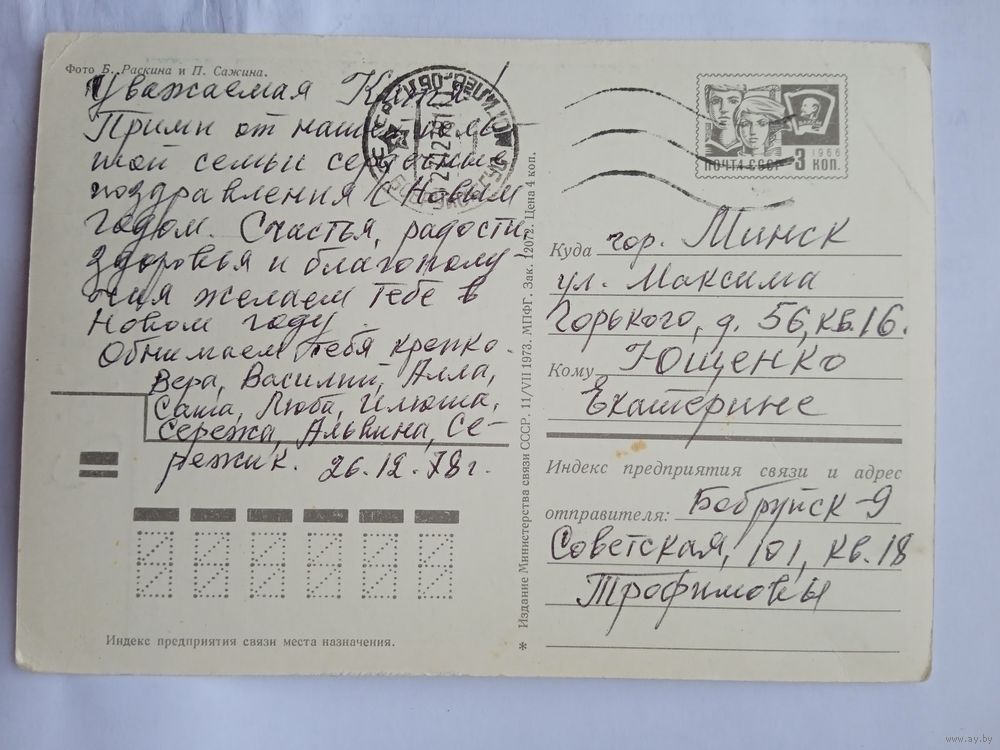 Фото Б. Раскина и П. Сажина.
Уважаемая Катя!
Прими от нашей боль-
шой семьи сердечные
поздравления с Новым
годом. Счастья, радости,
здоровья и благополу-
чия желаем тебе в
новом году.
Обнимаем тебя крепко.
Вера, Василий, Алла,
Саша, Люба, Илюша,
Сережа, Альвина, Се-
режик. 26.12.78г.
Индекс предприятия связи места назначения.
* Издание Министерства связи СССР. 11/VII 1973. МПФГ. Зак. 12072. Цена 4 коп.
ВЛКСМ
1966
ПОЧТА СССР 3 КОП.
Куда гор. Минск
ул. Максима
Горького, д. 56, кв. 16.
Кому Ющенко
Екатерине
Индекс предприятия связи и адрес
отправителя: Бобруйск-9
Советская, 101, кв. 18
Трофимовы
www.ay.by